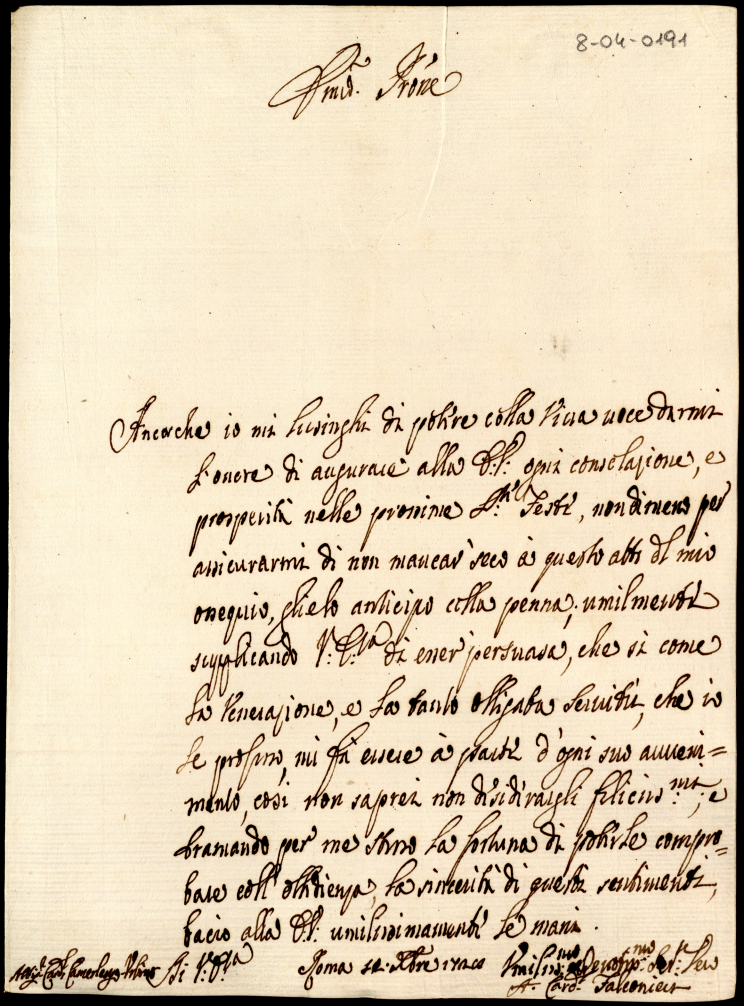 8-04-0191
Em̃o. Pr̃one
Ancorche io mi lusinghi di potere colla viva voce darmi
l'onore di augurare alla E: V: ogni consolazione, e
prosperità nelle prossime S.te Feste, nondimeno per
assicurarmi di non mancar seco à questo atto del mio
ossequio, glielo anticipo colla penna; umilmente
supplicando V: E:za di esser persuasa, che si come
la venerazione, e la tanto obligata servitù, che io
le professo, mi fà essere à parte d'ogni suo avveni=
mento, così non saprei non desiderargli felicissmi; e
bramando per me stesso la fortuna di poterle compro=
bare coll'obbedienza, la sincerità di questi sentimenti,
bacio alla E: V: umilissimamente le mani.
Di V: E:za Roma Xbre
Card. Camerlengo Umiliss.mo Devotiss.mo Ser.re Vero
A. Card. Falconieri